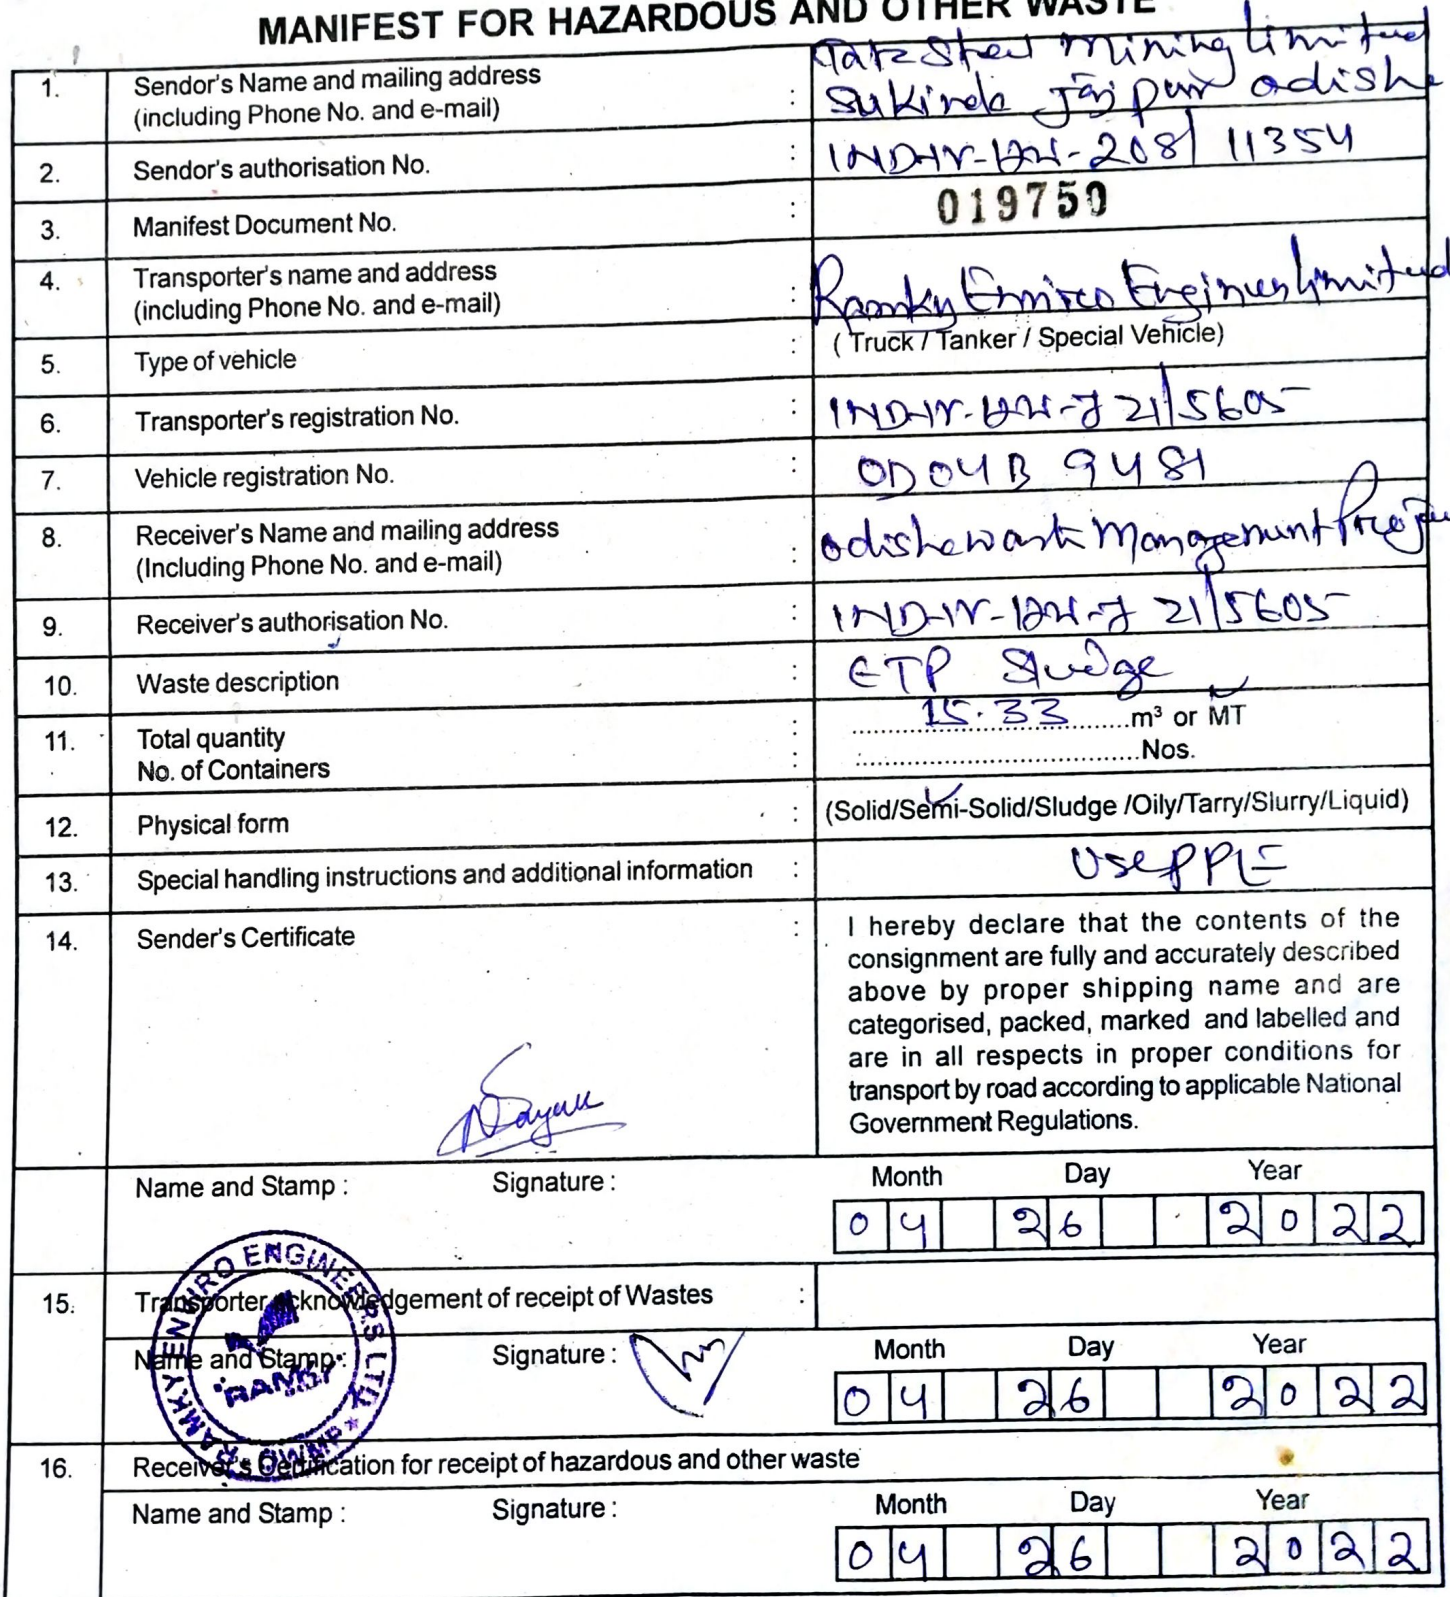 MANIFEST FOR HAZARDOUS AND OTHER WASTE
1. Sendor's Name and mailing address : Tata Steel Mining Limited
(including Phone No. and e-mail) Sukinda Jajpur odisha
2. Sendor's authorisation No. : IND-IV-HW-208/11354
3. Manifest Document No. : 019750
4. Transporter's name and address : Ramky Enviro Engineers limited
(including Phone No. and e-mail)
5. Type of vehicle : ( Truck / Tanker / Special Vehicle)
6. Transporter's registration No. : IND-IV-HW-721/5605
7. Vehicle registration No. : OD04B 9481
8. Receiver's Name and mailing address : odisha waste Management Proje
(Including Phone No. and e-mail)
9. Receiver's authorisation No. : IND-IV-HW-721/5605
10. Waste description : ETP Sludge
11. Total quantity : 15.33 m³ or MT
No. of Containers : Nos.
12. Physical form : (Solid/Semi-Solid/Sludge /Oily/Tarry/Slurry/Liquid)
13. Special handling instructions and additional information : Use PPE
14. Sender's Certificate : I hereby declare that the contents of the
consignment are fully and accurately described
above by proper shipping name and are
categorised, packed, marked and labelled and
are in all respects in proper conditions for
transport by road according to applicable National
Government Regulations.
Name and Stamp : Signature : Month Day Year
04 26 2022
15. Transporter acknowledgement of receipt of Wastes :
Name and Stamp : Signature : Month Day Year
04 26 2022
RAMKY ENVIRO ENGINEERS LTD. * OWMP *
RAMKY
16. Receiver's Certification for receipt of hazardous and other waste
Name and Stamp : Signature : Month Day Year
04 26 2022